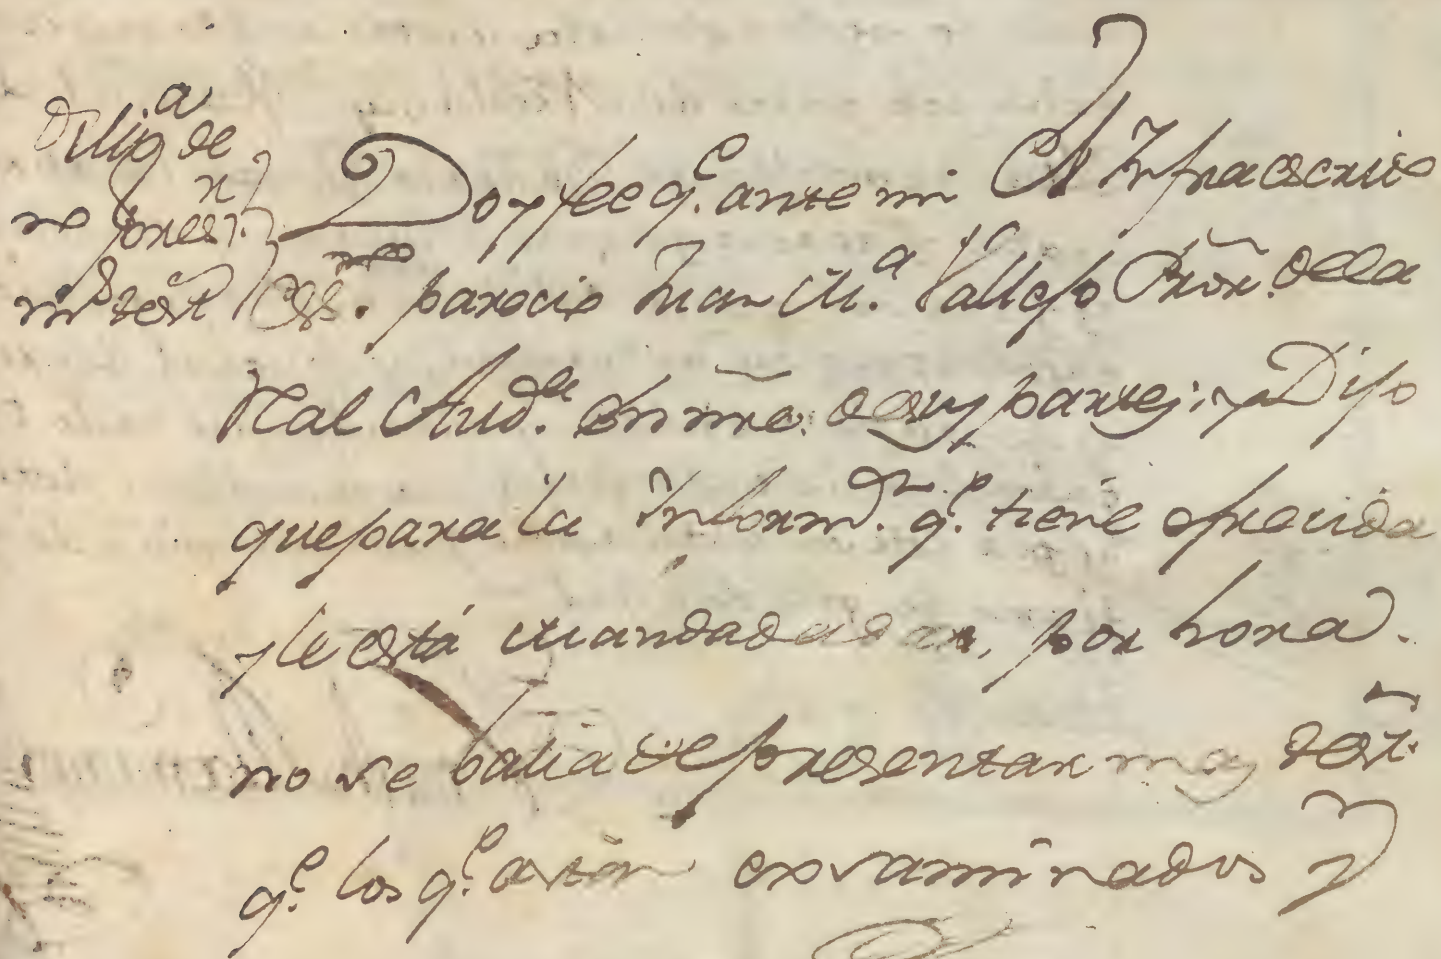 Dilig.ª de
no presr.
ms. test.
Doy fee q.e ante mi el Infraescrito
Ess.no parecio Juan M.a Vallejo Pror. de la
Real Aud.a en nre. de sus partes; y Dijo
que para la Informn. q.e tiene ofrecida
y le está mandada dar, por hora.
no se balia de presentar mas test.
q.e los q.e están exsaminados y